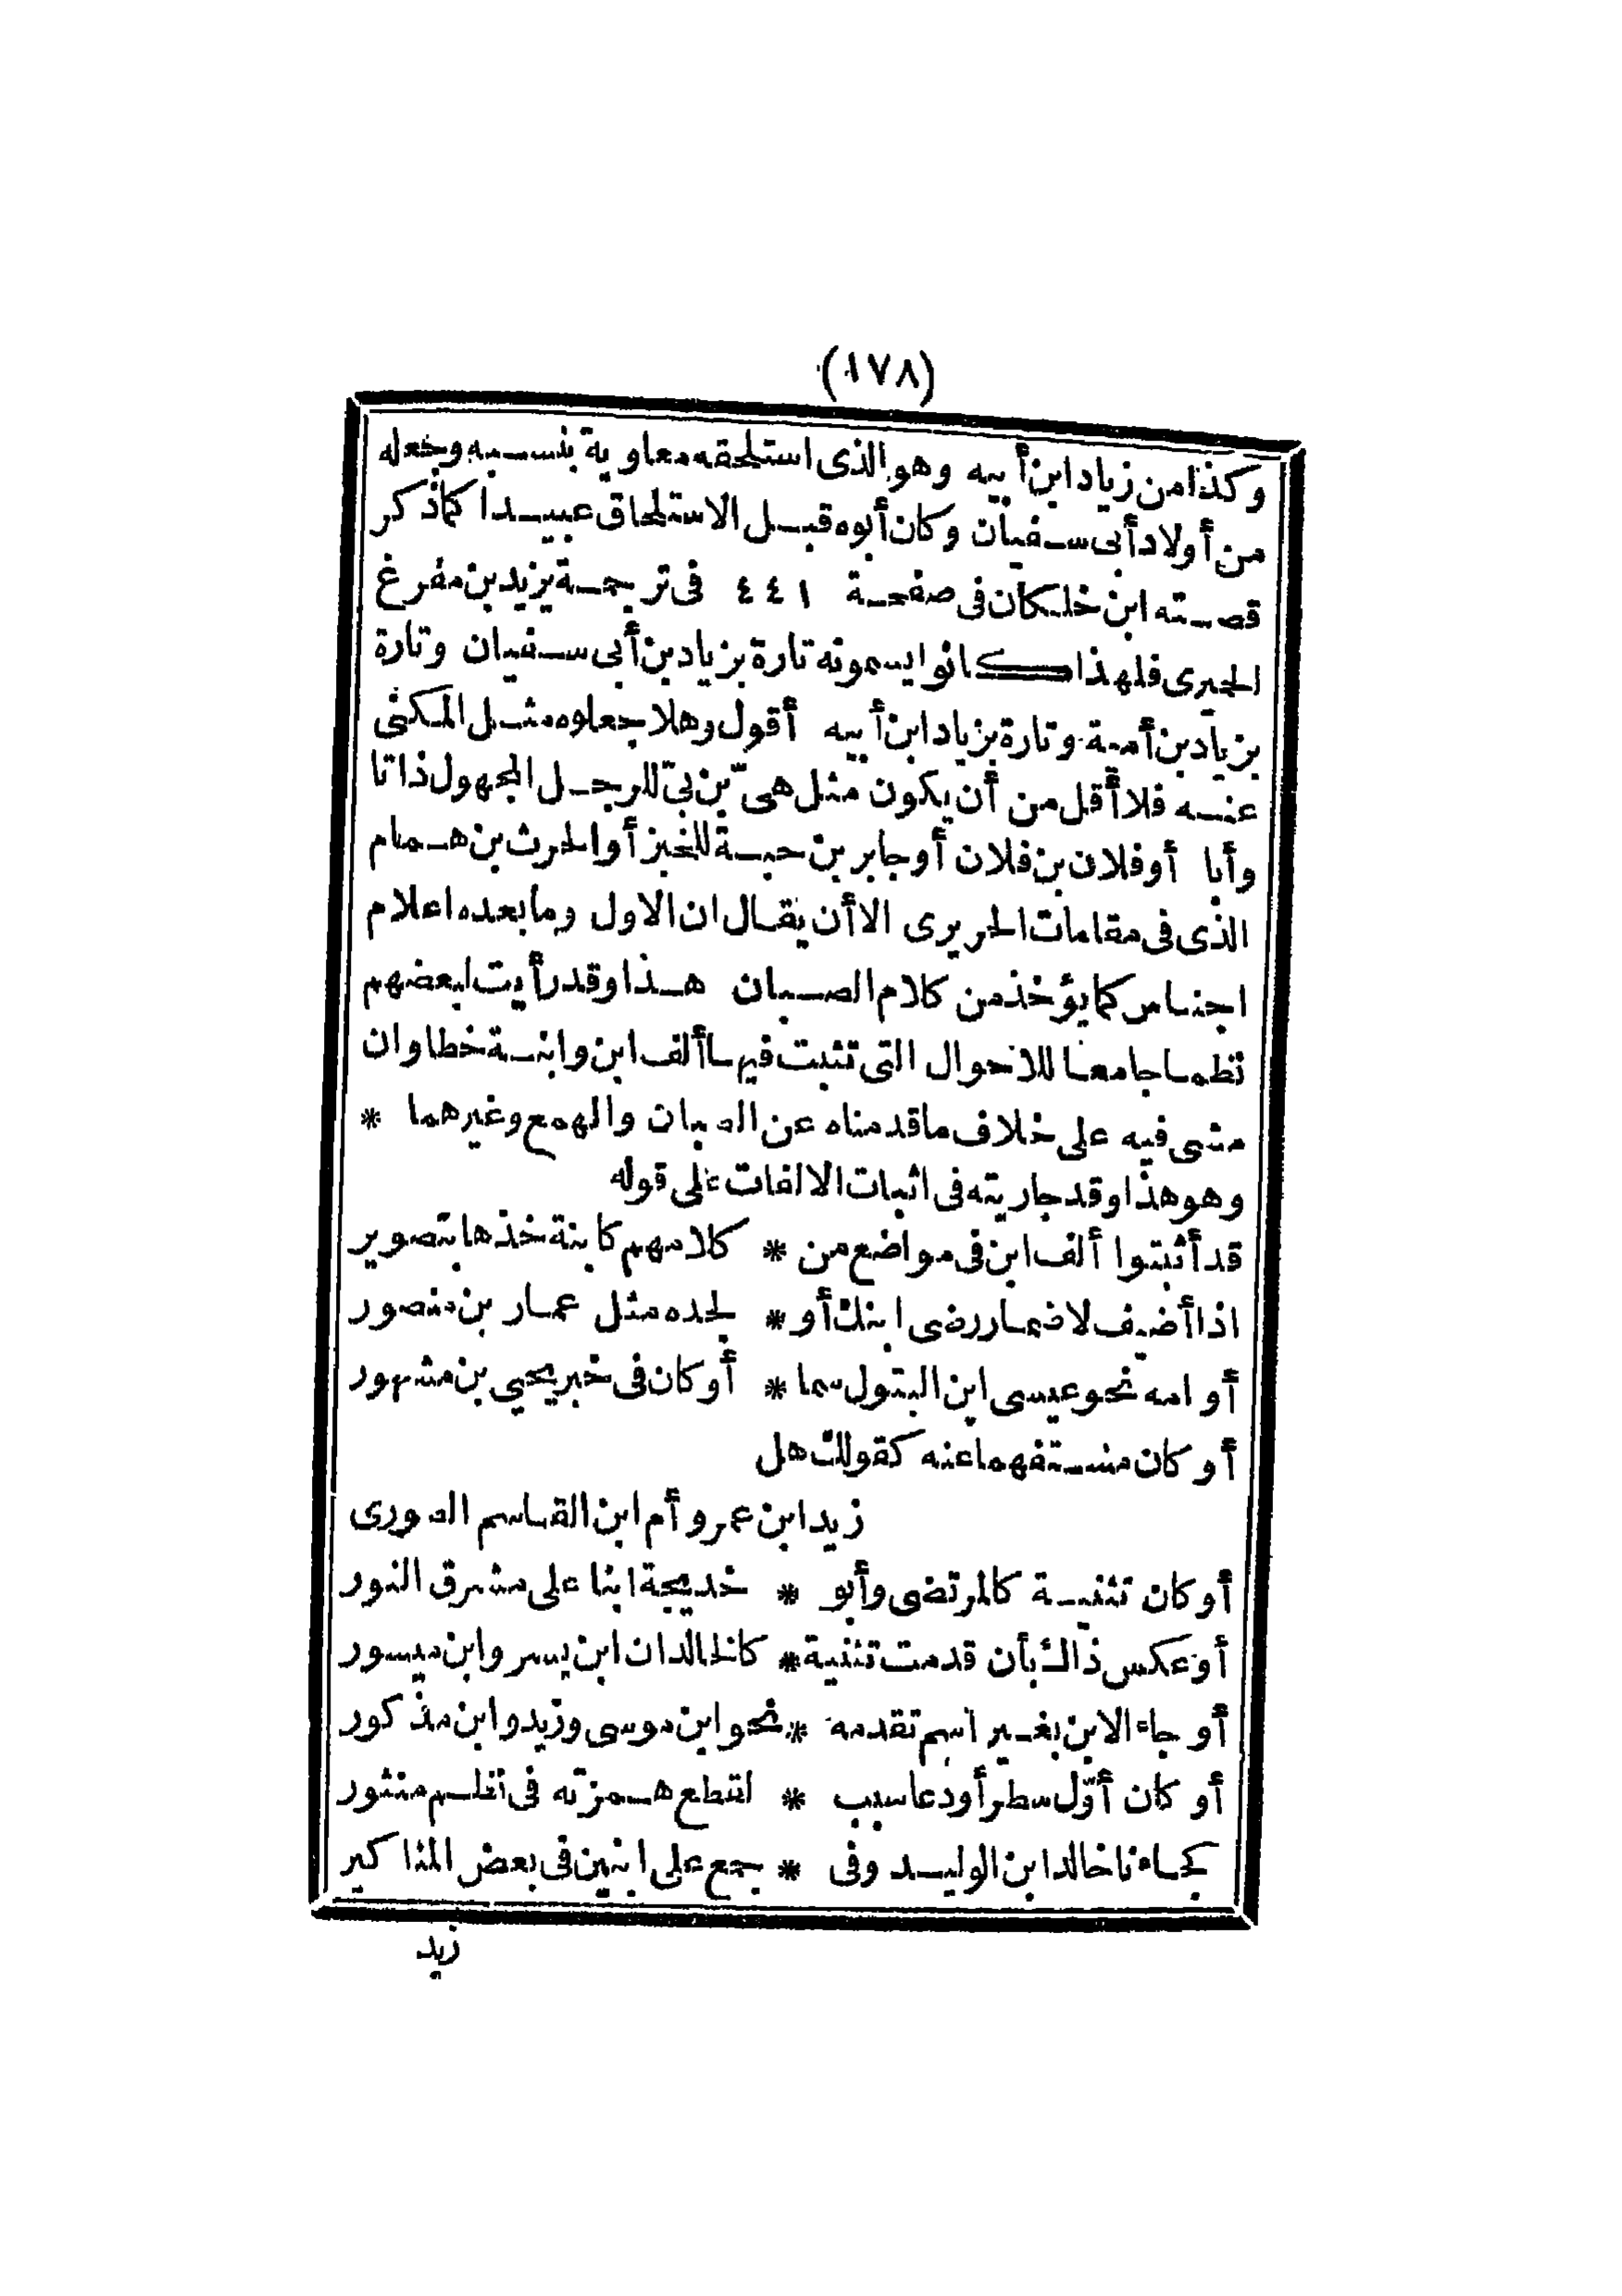 (١٧٨)
وكذا من زياد ابن أبيه وهو الذى استلحقه معاوية بنسبه وجعله
من أولاد أبى سفيان وكان أبوه قبل الاستلحاق عبيدا كما ذكر
قصته ابن خلكان فى صفحة ٤٤١ فى ترجمة يزيد بن مفرغ
الحيرى فلهذا كانوا يسمونه تارة بزياد بن أبى سفيان وتارة
بزياد بن أمية وتارة بزياد ابن أبيه أقول وهلا جعلوه مثل المكنى
عنه فلا أقل من أن يكون مثل هىّ بن بىّ للرجل المجهول ذاتا
وأبا أو فلان بن فلان أو جابر بن حبة للخبز أو الحرث بن همام
الذى فى مقامات الحريرى الا أن يقال ان الاول وما بعده اعلام
اجناس كما يؤخذ من كلام الصبان هذا وقد رأيت لبعضهم
نظما جامعا للاحوال التى تثبت فيها ألف ابن وابنة خطا وان
مشى فيه على خلاف ما قدمناه عن الصبان والهمع وغيرهما *
وهو هذا وقد جاريته فى اثبات الالفات على قوله
قد أثبتوا ألف ابن فى مواضع من * كلامهم كابنة خذها بتصوير
اذا أضيف لاضمار رضى ابنك أو * لجده مثل عمار بن منصور
أو امه نحو عيسى ابن البتول سما * أو كان فى خبر يحيى بن مشهور
أو كان مستفهما عنه كقولك هل
زيد ابن عمرو أم ابن القاسم الصورى
أو كان تثنية كالمرتضى وأبو * خديجة ابنا على مشرق النور
أو عكس ذاك بأن قدمت تثنية * كالخالدان ابن يسر وابن ميسور
أو جاء الابن بغير اسم تقدمه * نحو ابن موسى وزيد وابن مذكور
أو كان أوّل سطر أو دعا سبب * لقطع همزته فى نظم منثور
كجاءنا خالد ابن الوليد وفى * جمع على ابنين فى بعض المذاكير
زيد